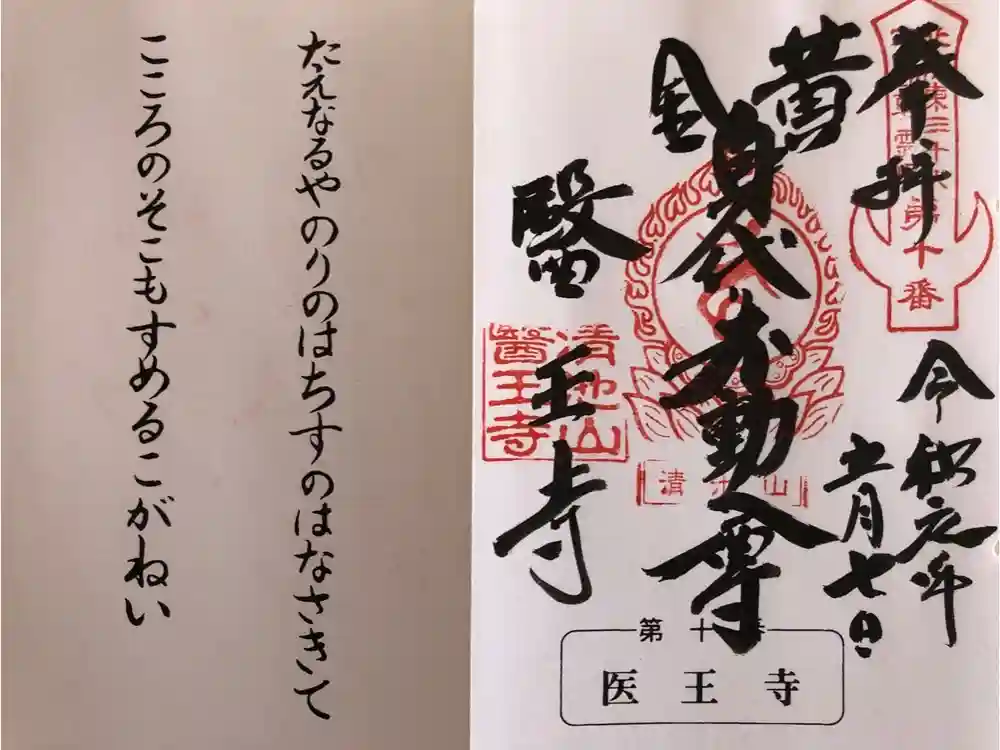 奉拝
令和元年
十一月七日
第十番
黄金
身代不動尊
醫王寺
清池山
醫王寺
第十番
医王寺
たえなるやのりのはちすのはなさきて
こころのそこもすめるこがねい